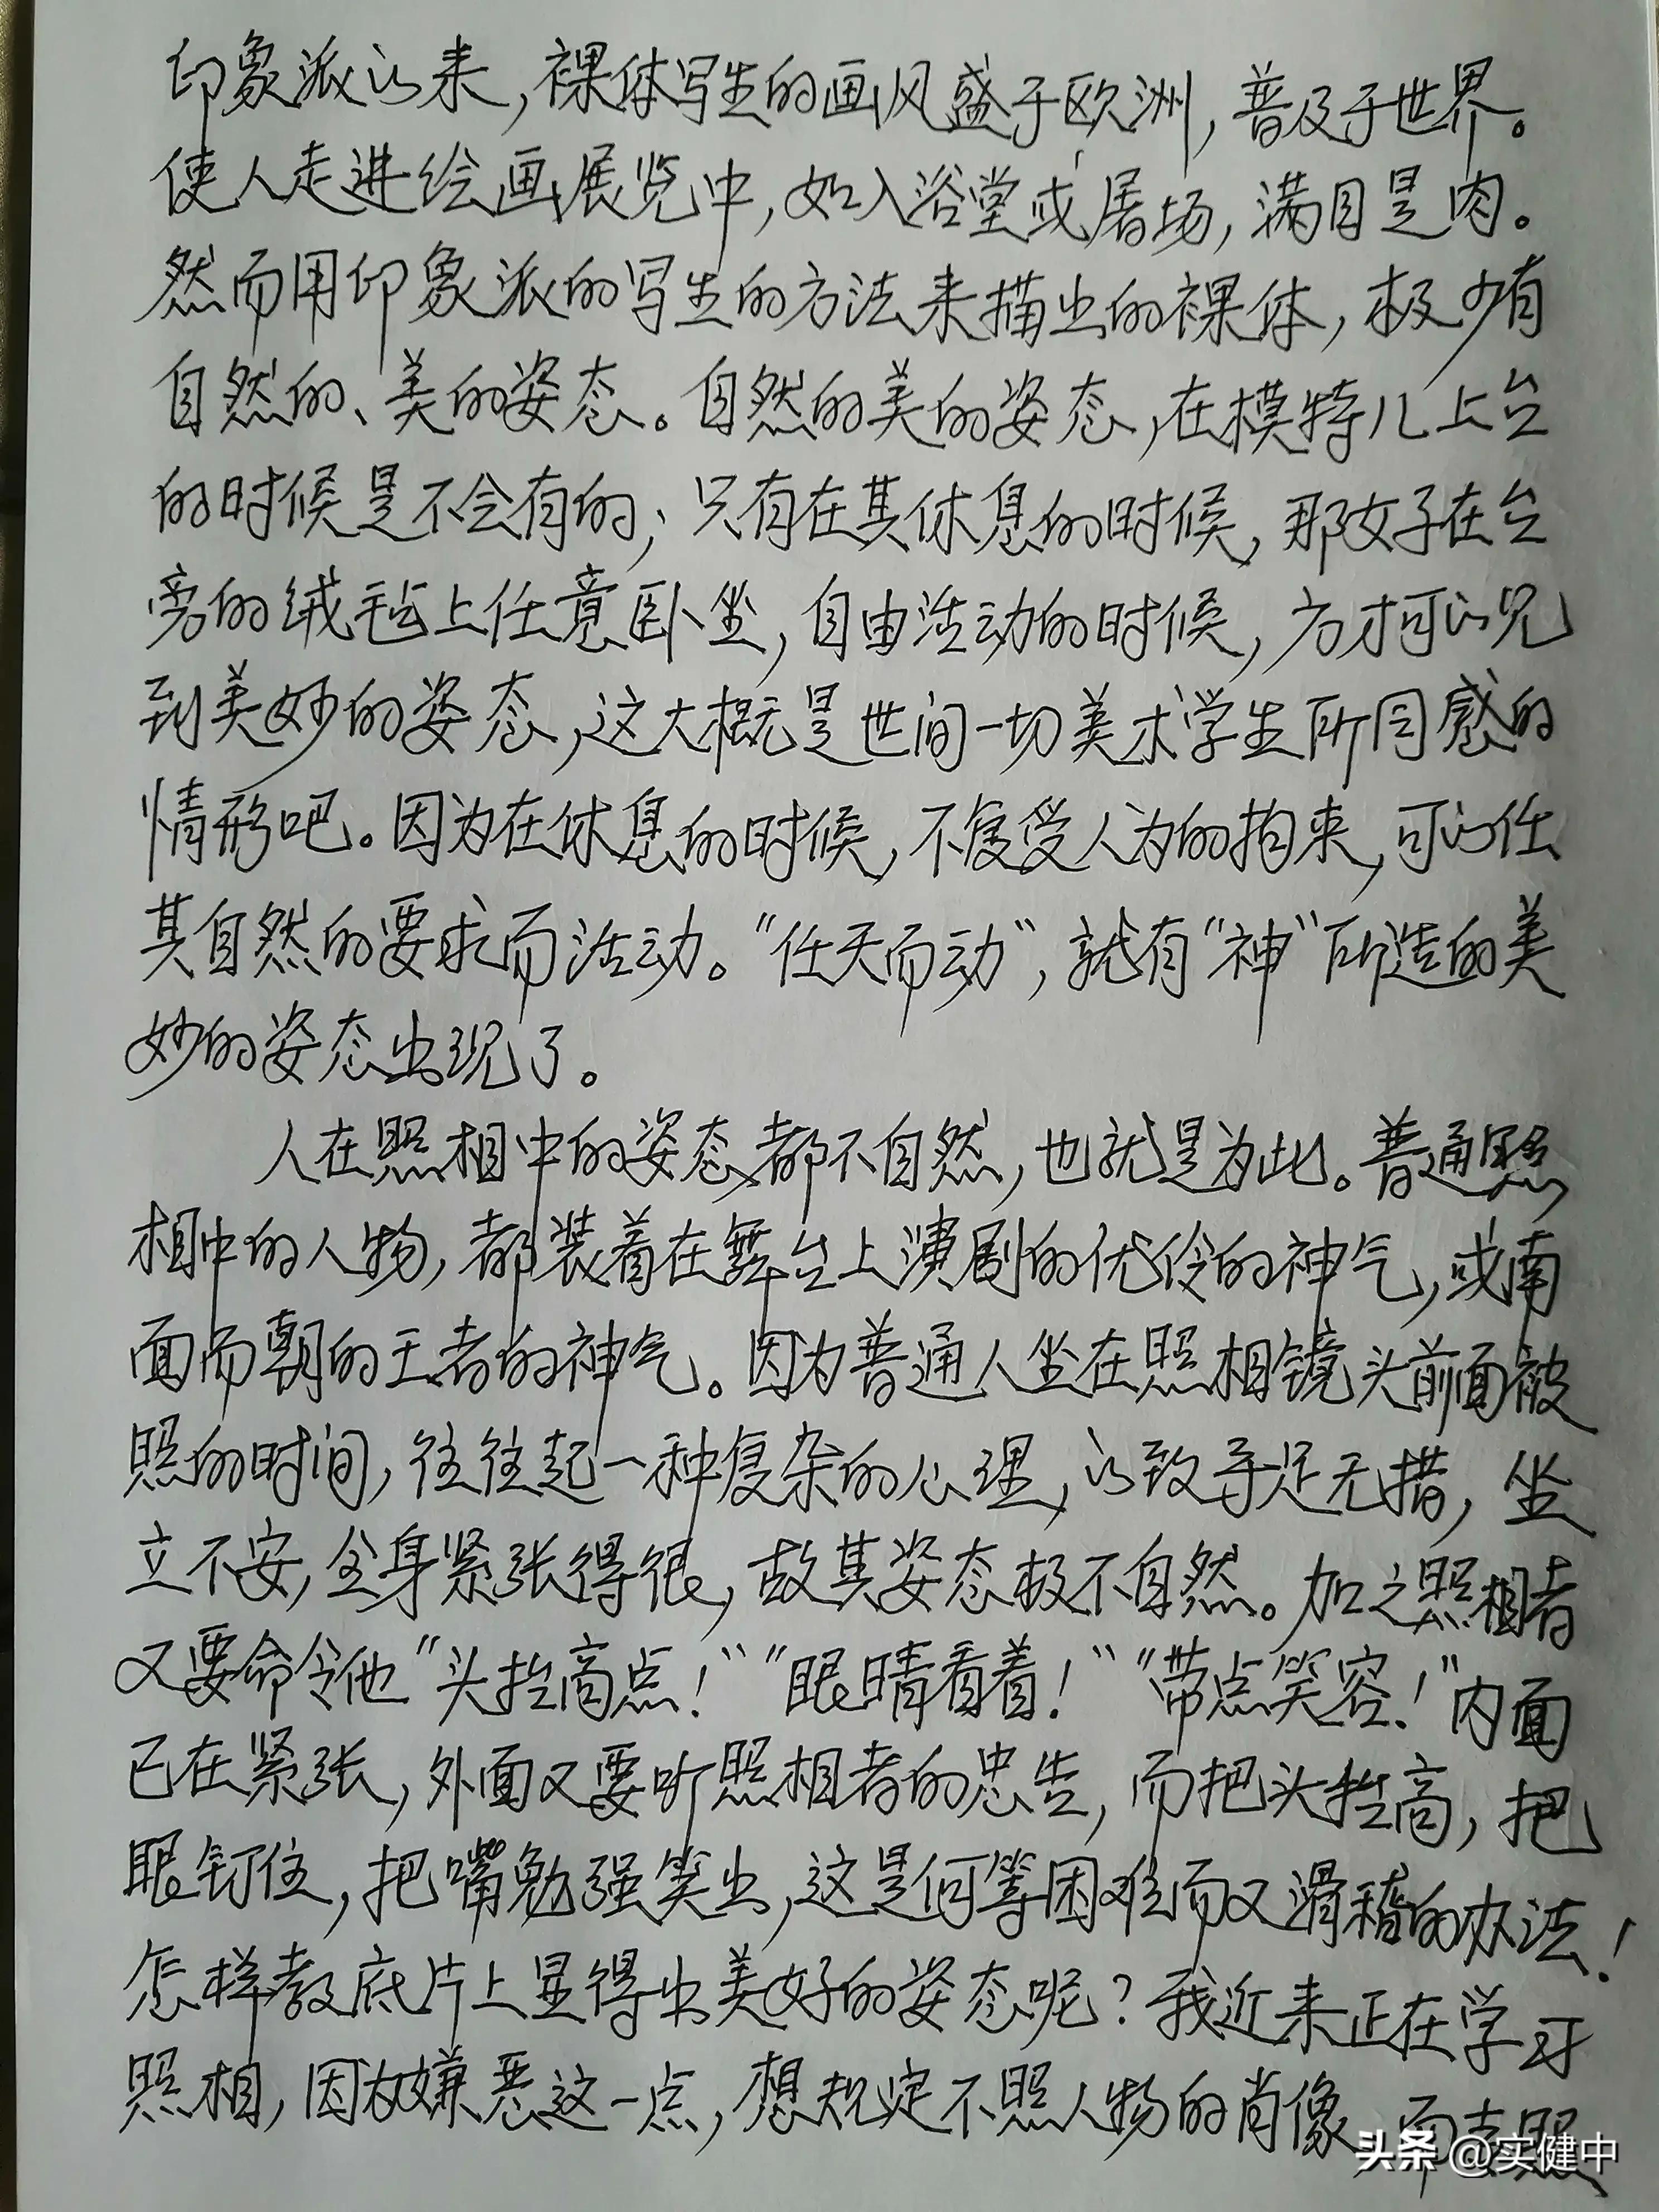 印象派以来，裸体写生的画风盛于欧洲，普及于世界。
使人走进绘画展览中，如入浴堂或屠场，满目是肉。
然而用印象派的写生的方法来描出的裸体，极少有
自然的、美的姿态。自然的美的姿态，在模特儿上台
的时候是不会有的；只有在其休息的时候，那女子在台
旁的绒毡上任意卧坐，自由活动的时候，方才可以见
到美妙的姿态，这大概是世间一切美术学生所同感的
情形吧。因为在休息的时候，不复受人为的拘束，可以任
其自然的要求而活动。“任天而动”，就有“神”所造的美
妙的姿态出现了。
人在照相中的姿态都不自然，也就是为此。普通照
相中的人物，都装着在舞台上演剧的优伶的神气，或南
面而朝的王者的神气。因为普通人坐在照相镜头前面被
照的时间，往往起一种复杂的心理，以致手足无措，坐
立不安，全身紧张得很，故其姿态极不自然。加之照相者
又要命令他“头抬高点！”“眼睛看着！”“带点笑容！”内面
已在紧张，外面又要听照相者的忠告，而把头抬高，把
眼钉住，把嘴勉强笑出，这是何等困难而又滑稽的办法！
怎样教底片上显得出美好的姿态呢？我近来正在学习
照相，因为嫌恶这一点，想规定不照人物的肖像，而专照
头条 @实健中